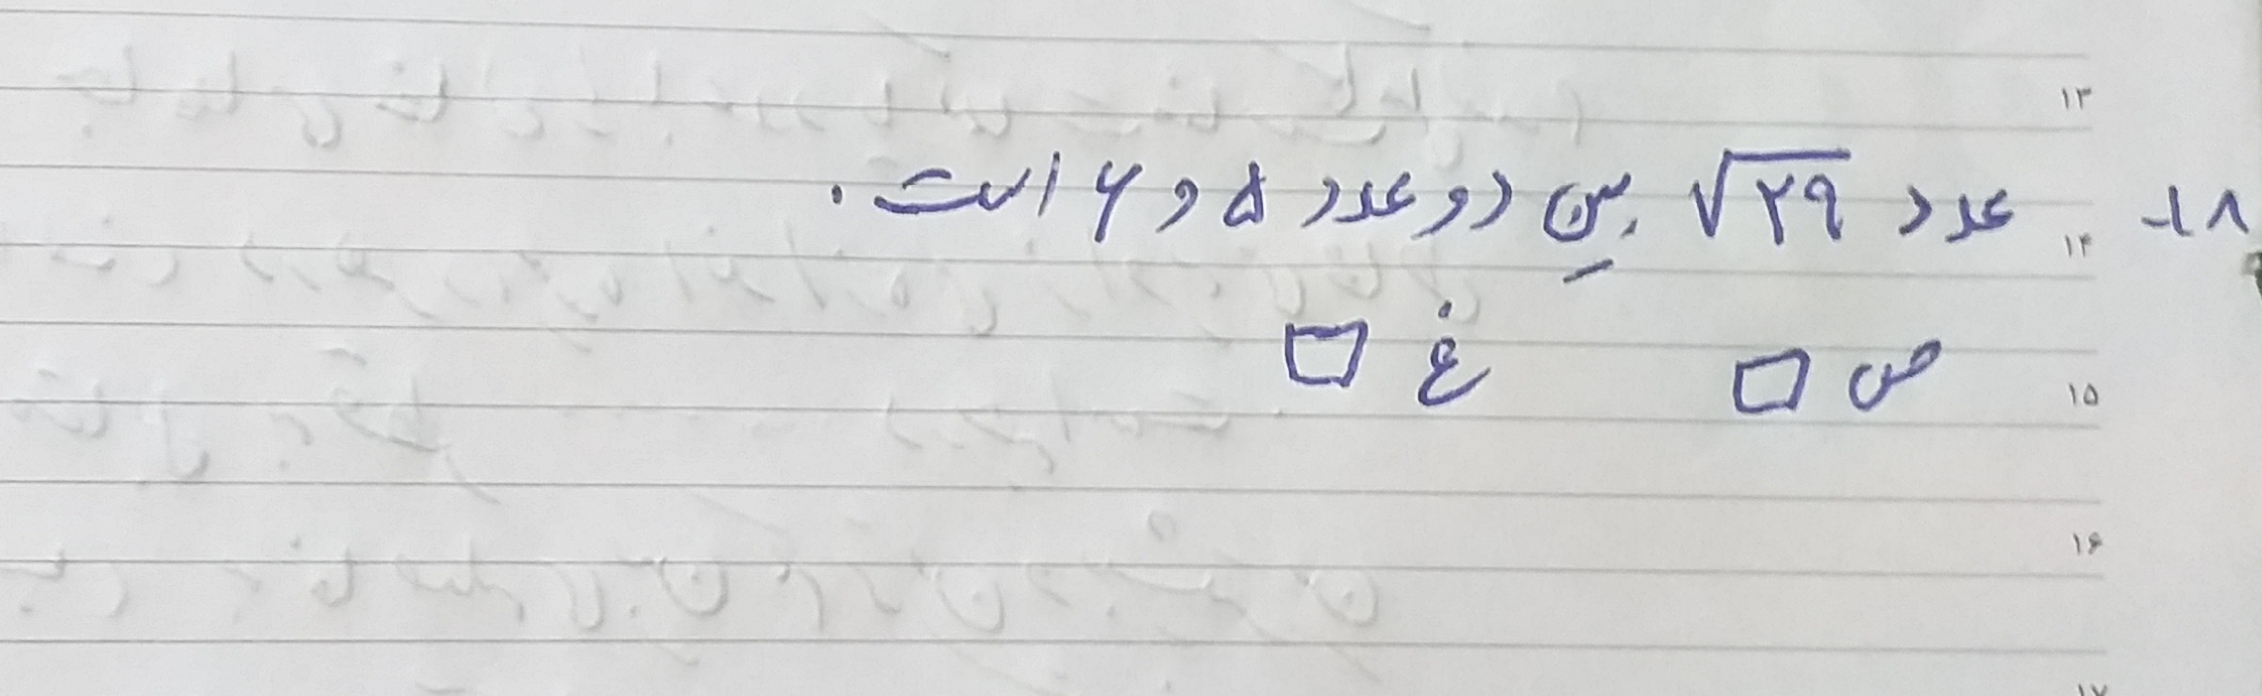 ۱۳
۱۸- عدد √۲۹ بین دو عدد ۵ و ۶ است.
۱۴
ص □ غ □
۱۵
۱۶
۱۷